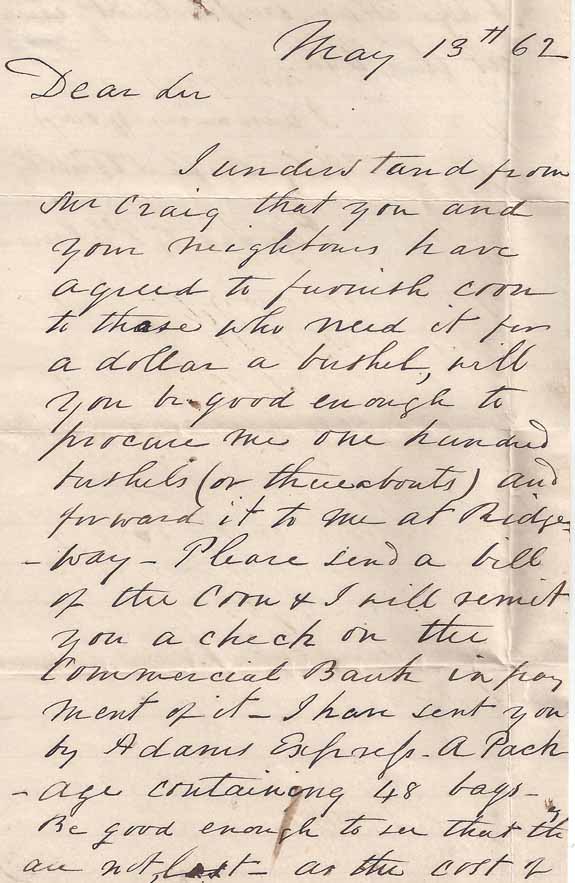 May 13th 62
Dear Sir
I understand from
Mr Craig that you and
your neighbours have
agreed to furnish corn
to those who need it for
a dollar a bushel, will
you be good enough to
procure me one hundred
bushels (or thereabouts) and
forward it to me at Ridge-
-way - Please send a bill
of the Corn & I will remit
you a check on the
Commercial Bank in pay
ment of it - I have sent you
by Adams Express - A Pack
-age containing 48 bags -
Be good enough to see that they
are not lost - as the cost of